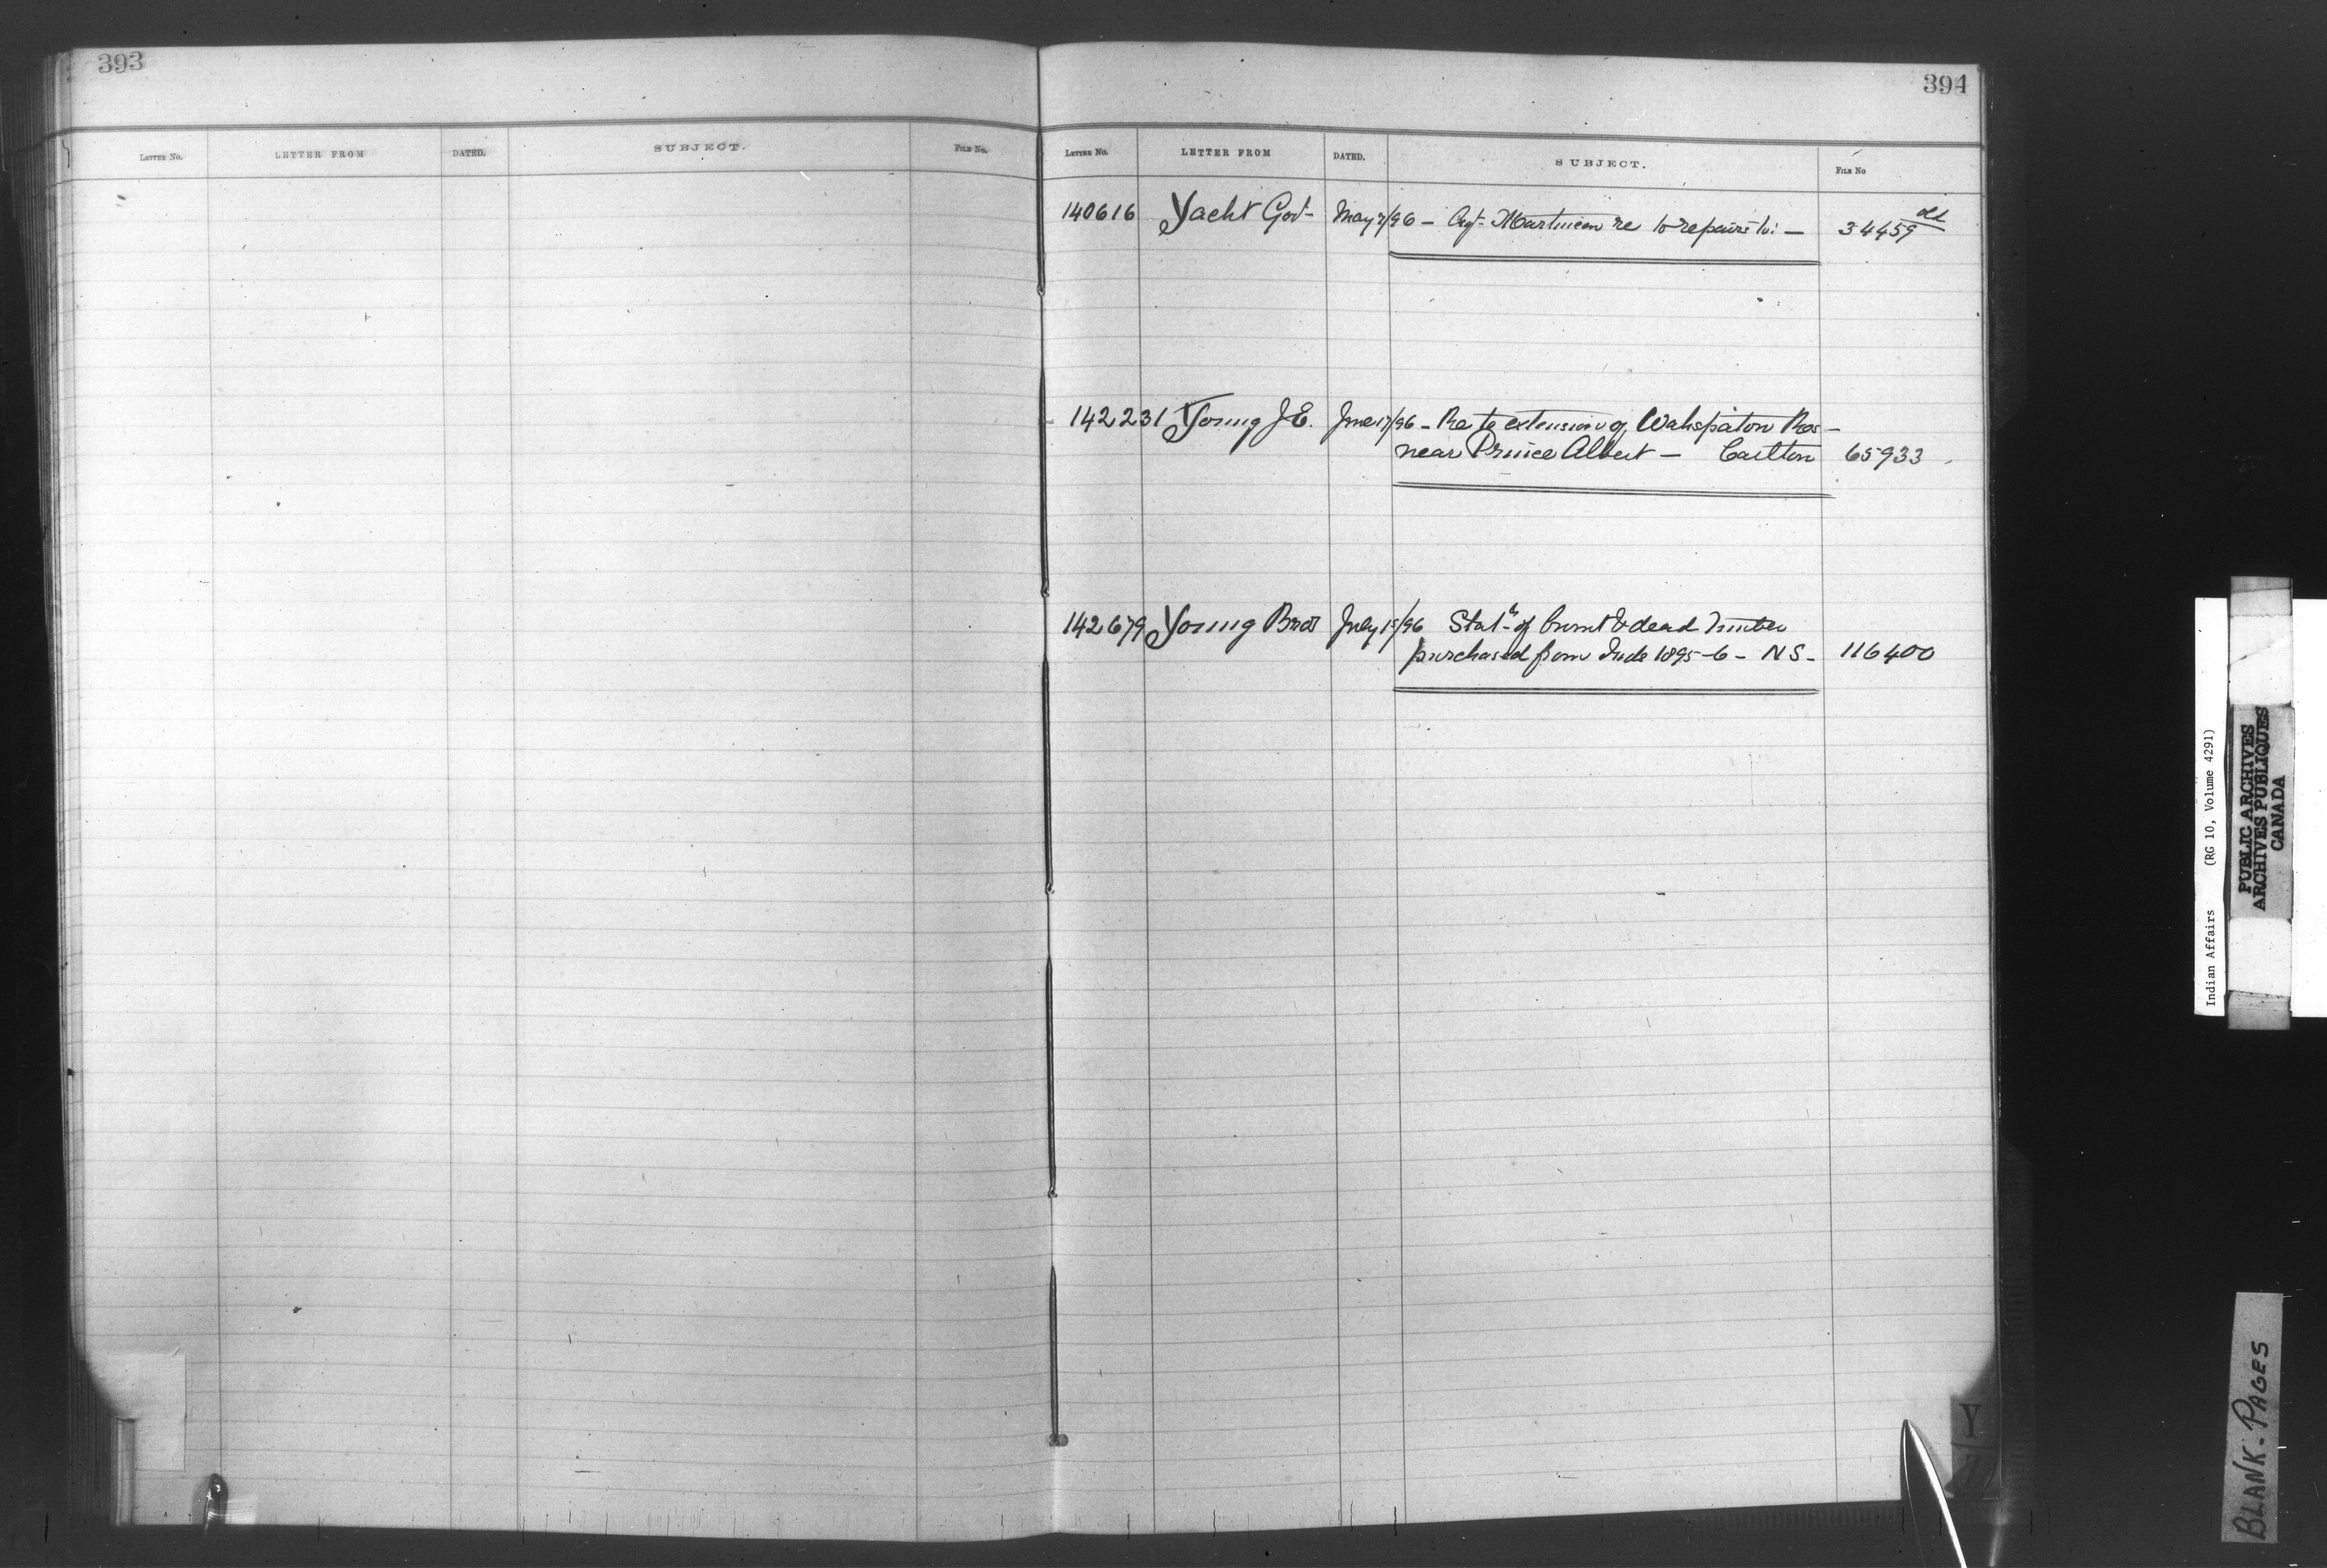 393
LETTER NO. LETTER FROM DATED. SUBJECT. FILE No.
394
LETTER NO. LETTER FROM DATED. SUBJECT. FILE No
140616 Yacht Govt- May /96 - Agt- Martineau re to repairs to: - 34459
142231 Young J E. June 17/96 - Re to extension of Wahspaton Res-
near Prince Albert - Carlton 65933
142679 Young Bros July 15/96 Stat- of burnt & dead Timber
purchased from Inds 1895-6 - NS- 116400
Indian Affairs (RG 10, Volume 4291)
PUBLIC ARCHIVES
ARCHIVES PUBLIQUES
CANADA
BLANK. PAGES
Y